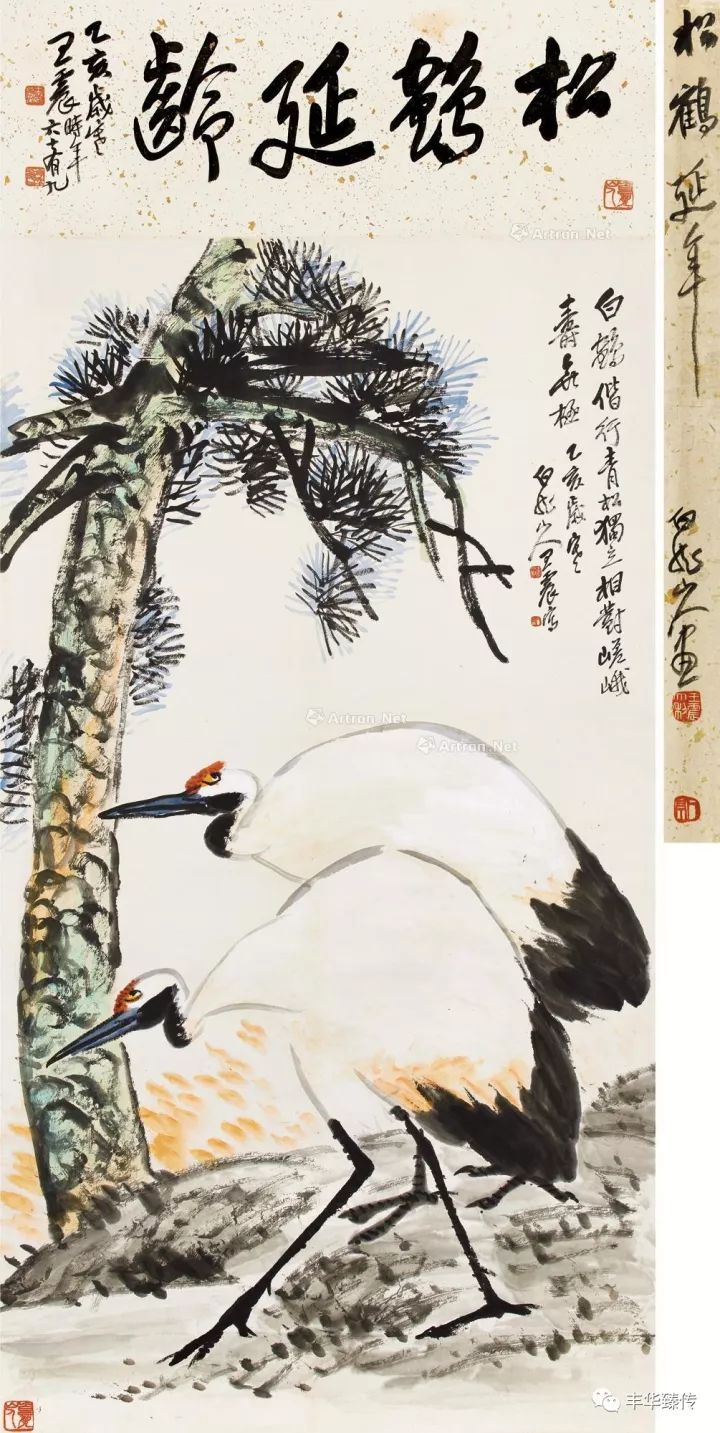 松鶴延齡
乙亥歲寒
王震時年六十有九
白鶴偕行青松獨立相對嵯峨
壽無極 乙亥歲寒
白龍山人王震寫
松鶴延年
白龍山人畫
Artron.Net
Artron.Net
Artron.Net
丰华臻传